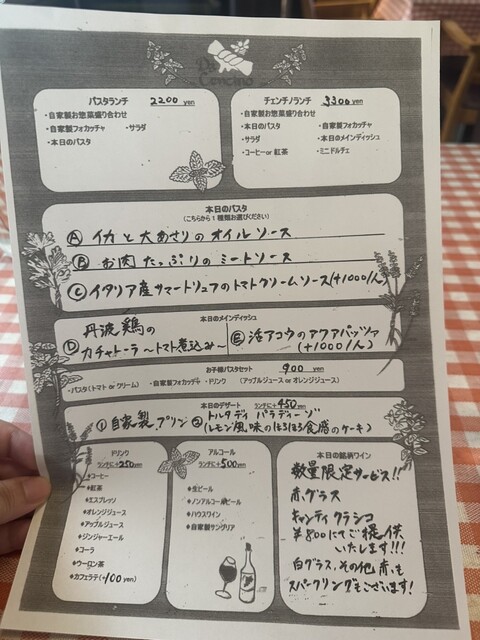 Da
Cencino
パスタランチ 2200 yen
・自家製お惣菜盛り合わせ
・自家製フォカッチャ ・サラダ
・本日のパスタ
チェンチノランチ 3300 yen
・自家製お惣菜盛り合わせ
・本日のパスタ ・自家製フォカッチャ
・サラダ ・本日のメインディッシュ
・コーヒーor 紅茶 ・ミニドルチェ
本日のパスタ
(こちらから1種類お選びください)
Ⓐ イカと大あさりのオイルソース
Ⓑ お肉たっぷりのミートソース
Ⓒ イタリア産サマートリュフのトマトクリームソース(+1000/人)
本日のメインディッシュ
Ⓓ 丹波鶏の
カチャトーラ〜トマト煮込み〜
Ⓔ 活アコウのアクアパッツァ
(+1000/人)
お子様パスタセット 900 yen
・パスタ(トマト or クリーム) ・自家製フォカッチャ ・ドリンク (アップルジュース or オレンジジュース)
本日のデザート ランチに+450yen
① 自家製プリン ② トルタディ パラディーゾ
(レモン風味のほろほろ食感のケーキ)
ドリンク
ランチに+250yen
*コーヒー
*紅茶
*エスプレッソ
*オレンジジュース
*アップルジュース
*ジンジャーエール
*コーラ
*ウーロン茶
*カフェラテ(+100yen)
アルコール
ランチに+500yen
*生ビール
*ノンアルコールビール
*ハウスワイン
*自家製サングリア
本日の銘柄ワイン
数量限定サービス!!
赤グラス
キャンティ クラシコ
¥800にてご提供
いたします!!!
白グラス、その他 赤も
スパークリングもございます!